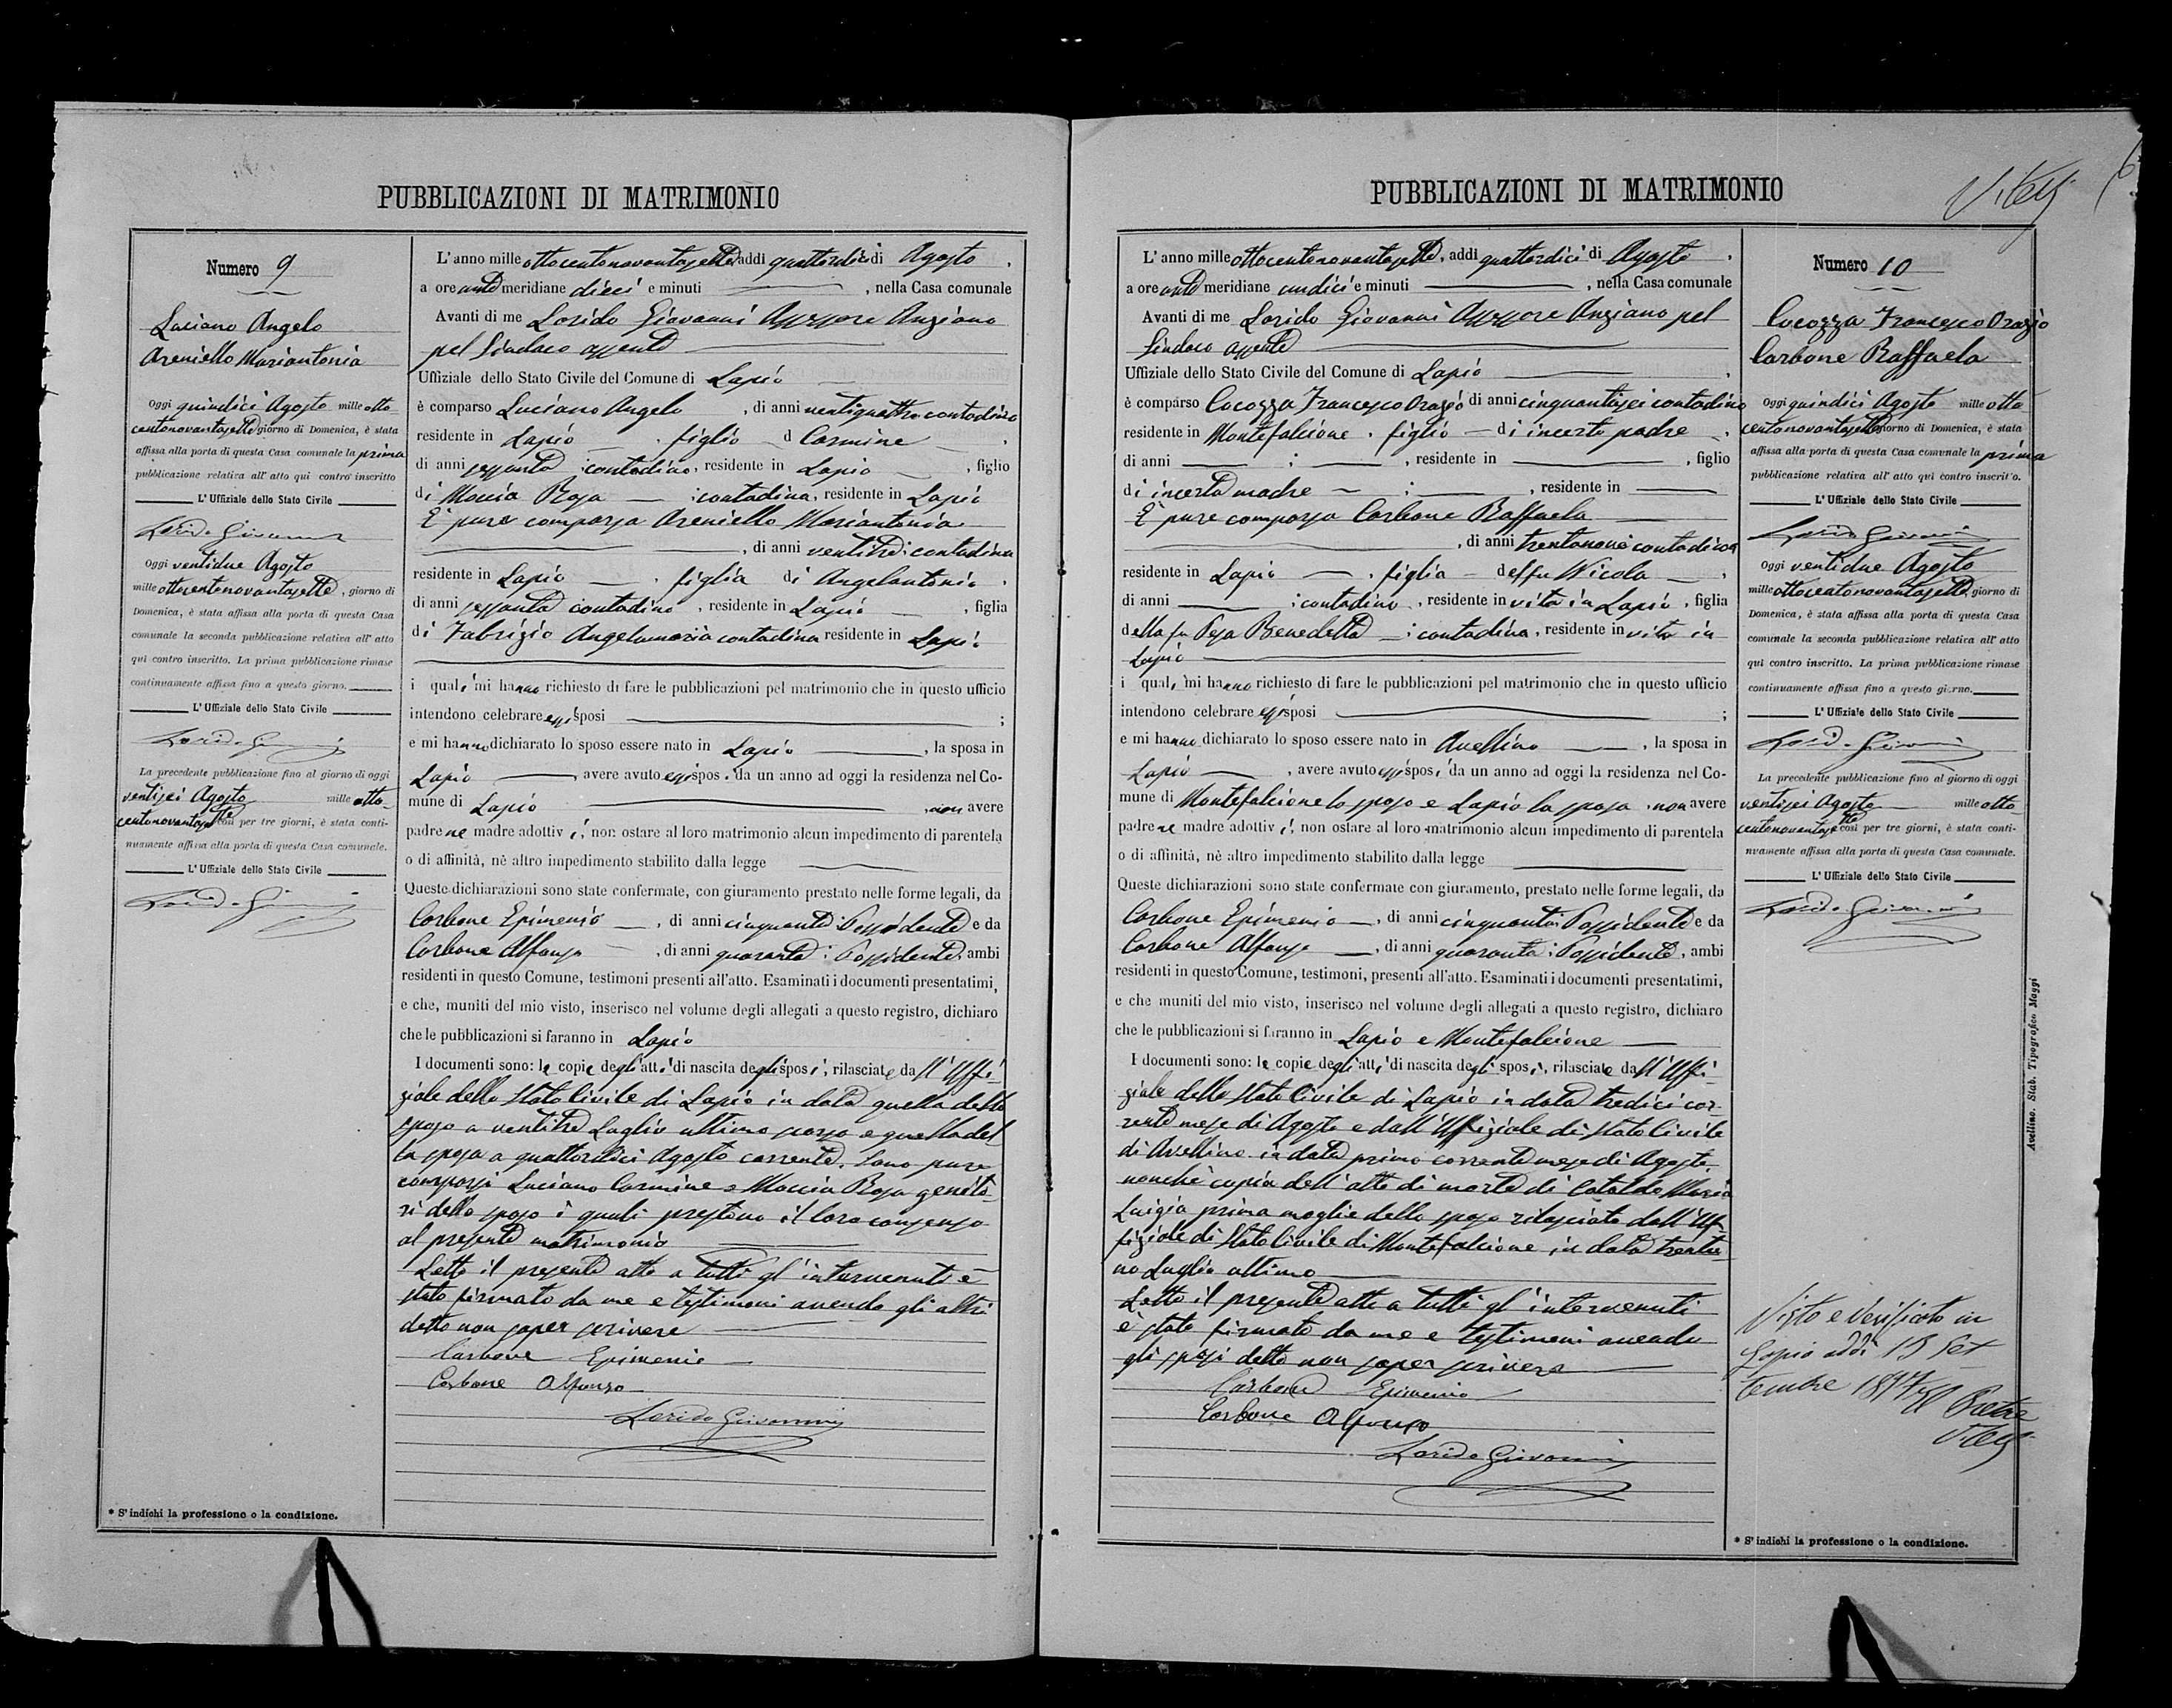 PUBBLICAZIONI DI MATRIMONIO
Numero 9
Luciano Angelo
Areniello Mariantonia
Oggi quindici Agosto mille otto
centonovantasette giorno di Domenica, è stata
affissa alla porta di questa Casa comunale la prima
pubblicazione relativa all' atto qui contro inscritto
L' Uffiziale dello Stato Civile
Lorido Giovanni
Oggi ventidue Agosto
mille ottocentonovantasette, giorno di
Domenica, è stata affissa alla porta di questa Casa
comunale la seconda pubblicazione relativa all' atto
qui contro inscritto. La prima pubblicazione rimase
continuamente affissa fino a questo giorno.
L' Uffiziale dello Stato Civile
Lorido Giovanni
La precedente pubblicazione fino al giorno di oggi
ventisei Agosto mille otto
centonovantasette così per tre giorni, è stata conti-
nuamente affissa alla porta di questa Casa comunale.
L' Uffiziale dello Stato Civile
Lorido Giovanni
* S' indichi la professione o la condizione.
L' anno mille ottocentonovantasette addi quattordici di Agosto,
a ore ante meridiane dieci e minuti , nella Casa comunale
Avanti di me Lorido Giovanni Assessore Anziano
pel Sindaco assente
Uffiziale dello Stato Civile del Comune di Lapio
è comparso Luciano Angelo, di anni ventiquattro contadino
residente in Lapio, figlio d Carmine,
di anni sessanta contadino, residente in Lapio, figlio
di Moccia Rosa contadina, residente in Lapio
E' pure comparsa Areniello Mariantonia
, di anni ventitre contadina
residente in Lapio, figlia di Angelantonio,
di anni sessanta contadino, residente in Lapio, figlia
di Fabrizio Angelamaria contadina residente in Lapio
i quali mi hanno richiesto di fare le pubblicazioni pel matrimonio che in questo ufficio
intendono celebrare essi sposi ;
e mi hanno dichiarato lo sposo essere nato in Lapio, la sposa in
Lapio, avere avuto essi sposi da un anno ad oggi la residenza nel Co-
mune di Lapio, non avere
padre ne madre adottivi, non ostare al loro matrimonio alcun impedimento di parentela
o di affinità, nè altro impedimento stabilito dalla legge
Queste dichiarazioni sono state confermate, con giuramento prestato nelle forme legali, da
Carbone Epimenio, di anni cinquanta Possidente e da
Carbone Alfonso, di anni quaranta Possidente, ambi
residenti in questo Comune, testimoni presenti all'atto. Esaminati i documenti presentatimi,
e che, muniti del mio visto, inserisco nel volume degli allegati a questo registro, dichiaro
che le pubblicazioni si faranno in Lapio
I documenti sono: le copie degli atti di nascita degli sposi, rilasciate dall' Uffi-
ziale dello Stato Civile di Lapio in data quella dello
sposo a ventitre Luglio ultimo scorso e quella del
la sposa a quattordici Agosto corrente. Sono pure
comparsi Luciano Carmine e Moccia Rosa genito-
ri dello sposo i quali prestano il loro consenso
al presente matrimonio
Letto il presente atto a tutti gl' intervenuti è
stato firmato da me e testimoni avendo gli altri
detto non saper scrivere
Carbone Epimenio
Carbone Alfonso
Lorido Giovanni
6
Vitelli
PUBBLICAZIONI DI MATRIMONIO
L' anno mille ottocentonovantasette, addi quattordici di Agosto,
a ore ante meridiane undici e minuti , nella Casa comunale
Avanti di me Lorido Giovanni Assessore Anziano pel
Sindaco assente
Uffiziale dello Stato Civile del Comune di Lapio,
è comparso Cocozza Francesco Orazio di anni cinquantasei contadino
residente in Montefalcione, figlio di incerto padre,
di anni ; , residente in , figlio
di incerta madre ; , residente in
E' pure comparsa Carbone Raffaela
, di anni trentanove contadina
residente in Lapio, figlia del fu Nicola,
di anni ; contadino, residente in vita in Lapio, figlia
della fu Pepa Benedetta ; contadina, residente in vita in
Lapio
i quali mi hanno richiesto di fare le pubblicazioni pel matrimonio che in questo ufficio
intendono celebrare essi sposi ;
e mi hanno dichiarato lo sposo essere nato in Avellino, la sposa in
Lapio, avere avuto essi sposi da un anno ad oggi la residenza nel Co-
mune di Montefalcione lo sposo e Lapio la sposa, non avere
padre ne madre adottivi, non ostare al loro matrimonio alcun impedimento di parentela
o di affinità, nè altro impedimento stabilito dalla legge
Queste dichiarazioni sono state confermate con giuramento, prestato nelle forme legali, da
Carbone Epimenio, di anni cinquanta Possidente e da
Carbone Alfonso, di anni quaranta Possidente, ambi
residenti in questo Comune, testimoni, presenti all'atto. Esaminati i documenti presentatimi,
e che muniti del mio visto, inserisco nel volume degli allegati a questo registro, dichiaro
che le pubblicazioni si faranno in Lapio e Montefalcione
I documenti sono: le copie degli atti di nascita degli sposi, rilasciate dall' Uffi-
ziale dello Stato Civile di Lapio in data tredici cor-
rente mese di Agosto e dall' Uffiziale di Stato Civile
di Avellino in data primo corrente mese di Agosto,
nonchè copia dell' atto di morte di Cataldo Maria
Luigia prima moglie dello sposo rilasciata dall' Uf-
fiziale di Stato Civile di Montefalcione in data trentu
no Luglio ultimo
Letto il presente atto a tutti gl' intervenuti
è stato firmato da me e testimoni avendo
gli sposi detto non saper scrivere
Carbone Epimenio
Carbone Alfonso
Lorido Giovanni
Numero 10
Cocozza Francesco Orazio
Carbone Raffaela
Oggi quindici Agosto mille otto
centonovantasette giorno di Domenica, è stata
affissa alla porta di questa Casa comunale la prima
pubblicazione relativa all' atto quì contro inscritto.
L' Uffiziale dello Stato Civile
Lorido Giovanni
Oggi ventidue Agosto
mille ottocentonovantasette giorno di
Domenica, è stata affissa alla porta di questa Casa
comunale la seconda pubblicazione relativa all' atto
quì contro inscritto. La prima pubblicazione rimase
continuamente affissa fino a questo giorno.
L' Uffiziale dello Stato Civile
Lorido Giovanni
La precedente pubblicazione fino al giorno di oggi
ventisei Agosto mille otto-
centonovantasette così per tre giorni, è stata conti-
nuamente affissa alla porta di questa Casa comunale.
L' Uffiziale dello Stato Civile
Lorido Giovanni
Visto e verificato in
Lapio addì 15 Set
tembre 1897 Il Pretore
Vitelli
Avellino. Stab. Tipografico Maggi
* S' indichi la professione o la condizione.